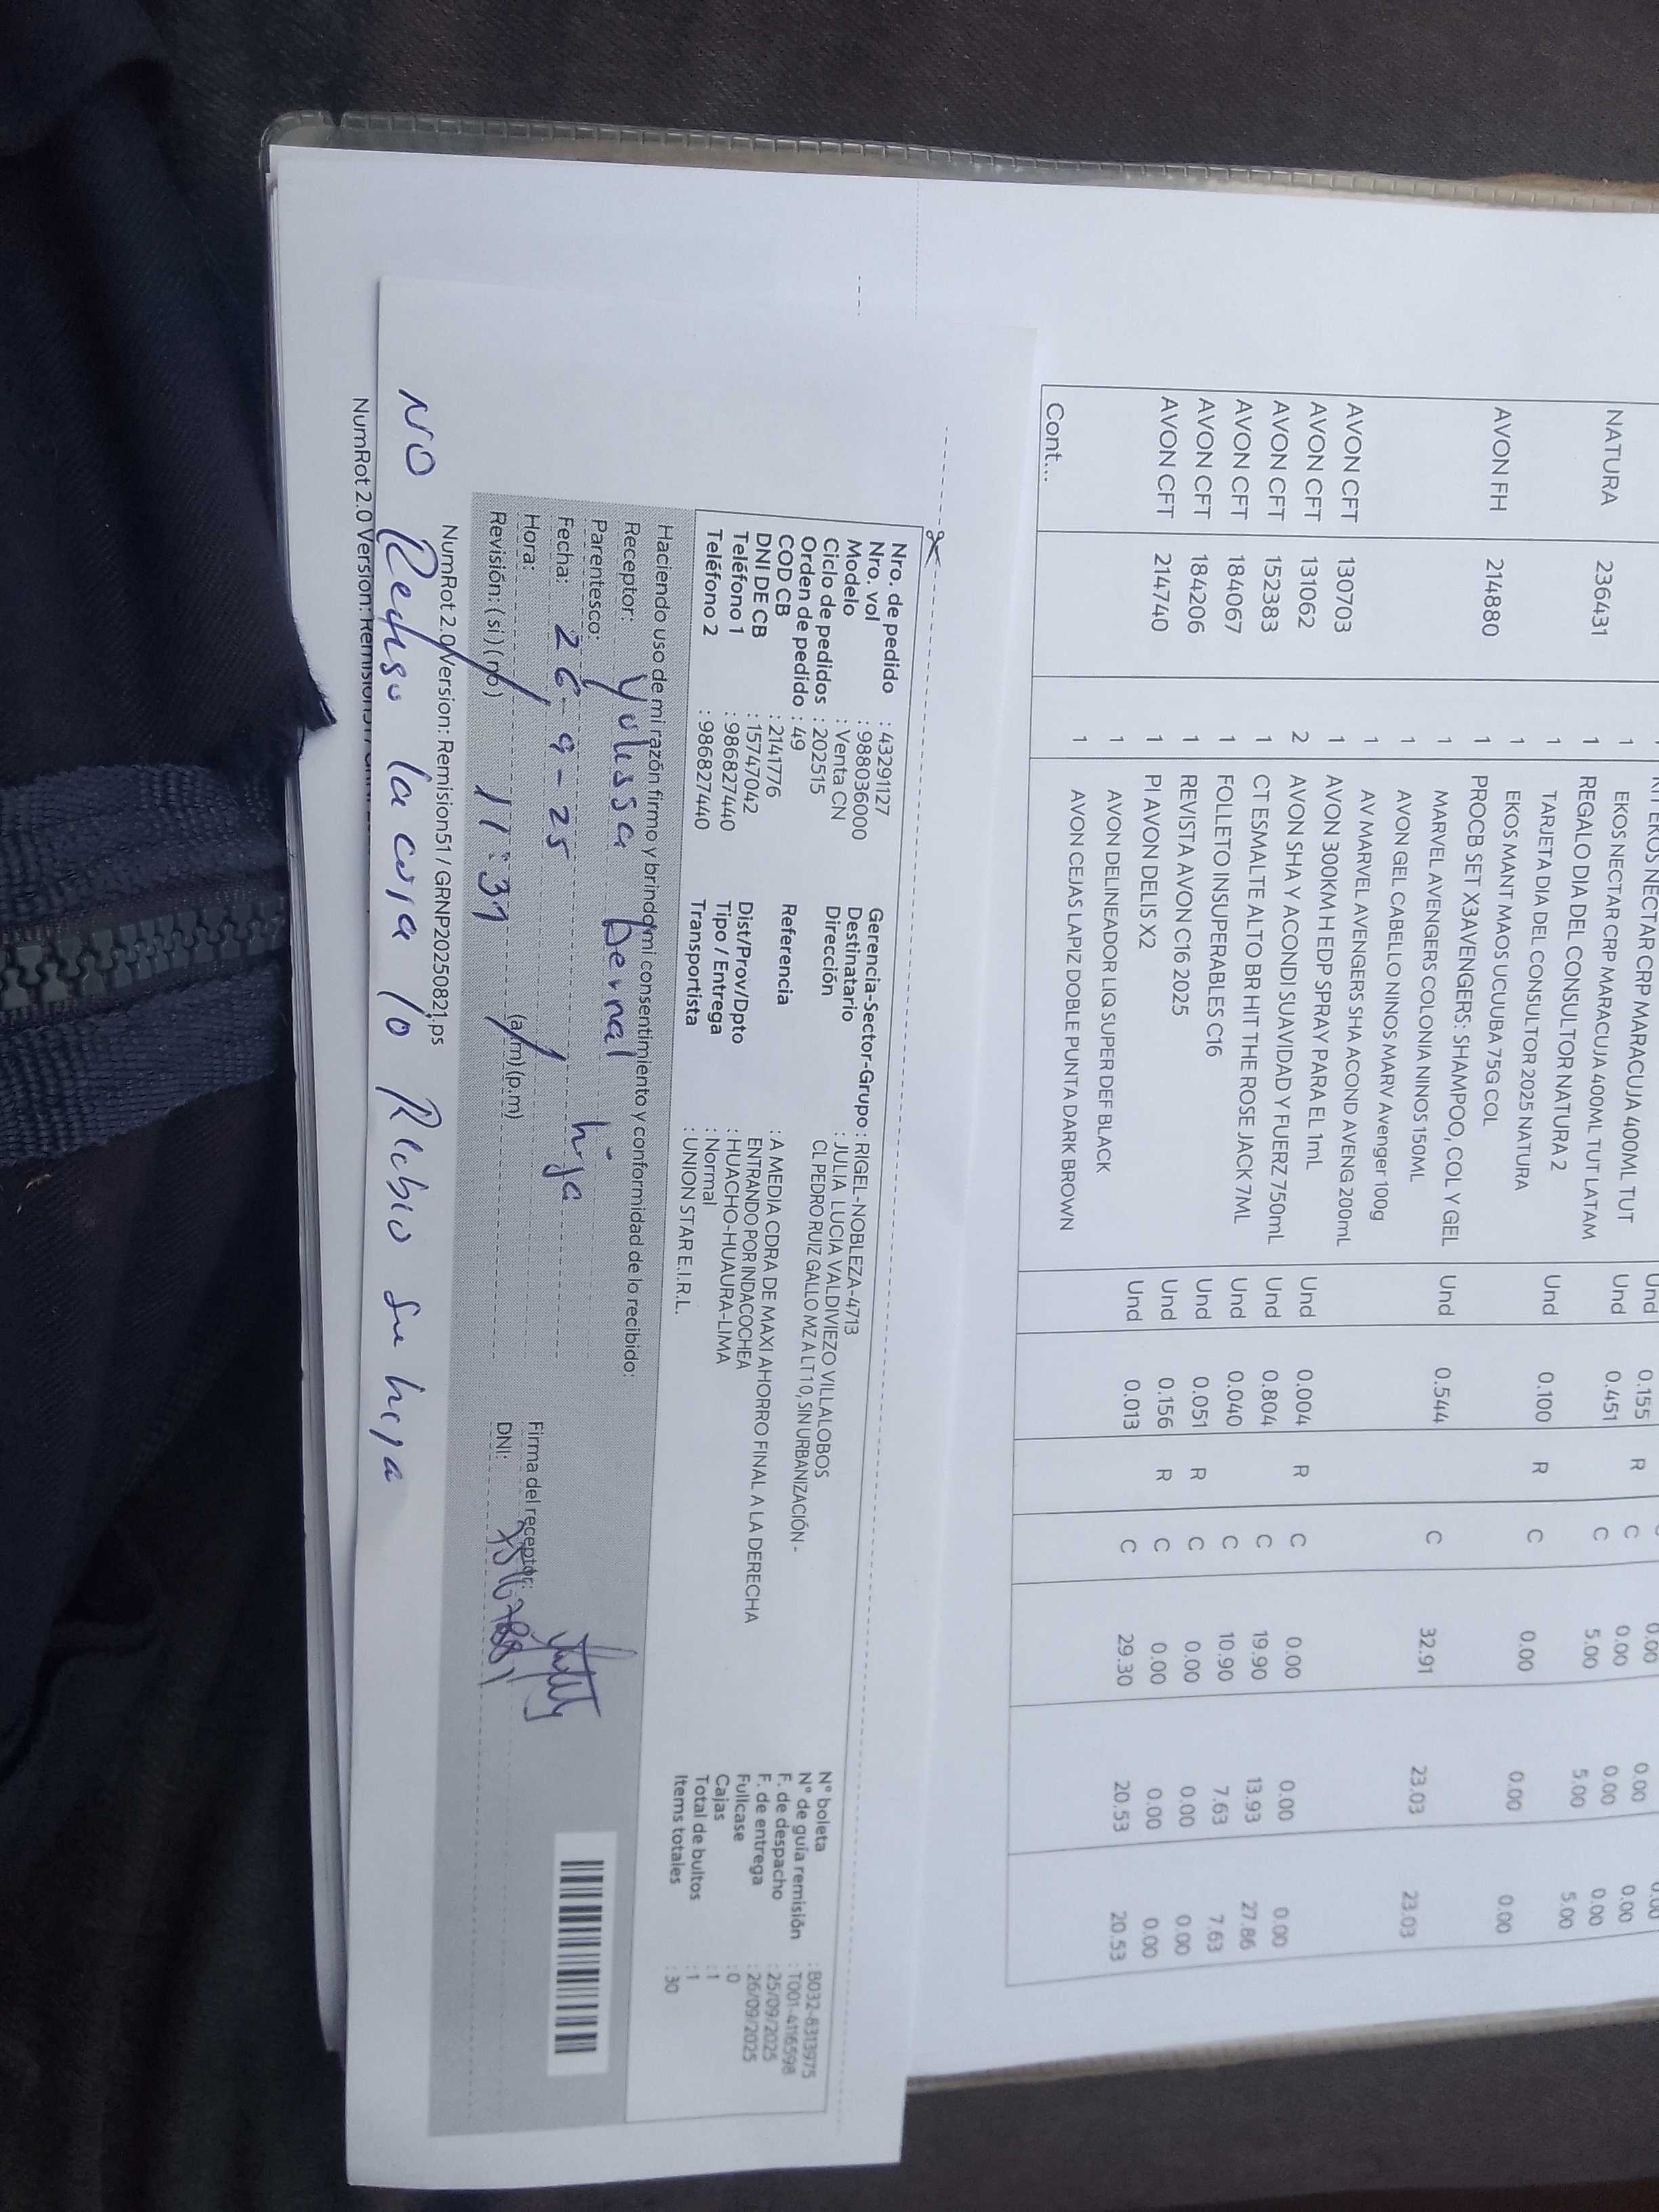 KIT EKOS NECTAR CRP MARACUJA 400ML TUT Und 0.155
EKOS NECTAR CRP MARACUJA 400ML TUT LATAM Und 0.451 R C 0.00 0.00 0.00
NATURA 236431 1 REGALO DIA DEL CONSULTOR NATURA C 5.00 5.00 5.00
1 TARJETA DIA DEL CONSULTOR 2025 NATURA 2 Und 0.100 R C 0.00 0.00 0.00
1 EKOS MANT MAOS UCUUBA 75G COL
AVON FH 214880 1 PROCB SET X3AVENGERS: SHAMPOO, COL Y GEL Und 0.544 C 32.91 23.03 23.03
1 MARVEL AVENGERS COLONIA NINOS 150ML
1 AVON GEL CABELLO NINOS MARV Avenger 100g
1 AV MARVEL AVENGERS SHA ACOND AVENG 200mL
AVON CFT 130703 1 AVON 300KM H EDP SPRAY PARA EL 1mL Und 0.004 R C 0.00 0.00 0.00
AVON CFT 131062 2 AVON SHA Y ACONDI SUAVIDAD Y FUERZ 750mL Und 0.804 C 19.90 13.93 27.86
AVON CFT 152383 1 CT ESMALTE ALTO BR HIT THE ROSE JACK 7ML Und 0.040 C 10.90 7.63 7.63
AVON CFT 184067 1 FOLLETO INSUPERABLES C16 Und 0.051 R C 0.00 0.00 0.00
AVON CFT 184206 1 REVISTA AVON C16 2025 Und 0.156 R C 0.00 0.00 0.00
AVON CFT 214740 1 PI AVON DELIS X2 Und 0.013 C 29.30 20.53 20.53
1 AVON DELINEADOR LIQ SUPER DEF BLACK
1 AVON CEJAS LAPIZ DOBLE PUNTA DARK BROWN
Cont...
Nro. de pedido : 43291127
Nro. vol : 988036000
Modelo : Venta CN
Ciclo de pedidos : 202515
Orden de pedido : 49
COD CB : 2141776
DNI DE CB : 15747042
Teléfono 1 : 986827440
Teléfono 2 : 986827440
Gerencia-Sector-Grupo : RIGEL-NOBLEZA-4713
Destinatario : JULIA LUCIA VALDIVIEZO VILLALOBOS
Dirección CL PEDRO RUIZ GALLO MZ A LT 10, SIN URBANIZACIÓN -
Referencia : A MEDIA CDRA DE MAXI AHORRO FINAL A LA DERECHA
ENTRANDO POR INDACOCHEA
Dist/Prov/Dpto : HUACHO-HUAURA-LIMA
Tipo / Entrega : Normal
Transportista : UNION STAR E.I.R.L.
N° boleta : B032-8313975
N° de guía remisión : T001-4116598
F. de despacho : 25/09/2025
F. de entrega : 26/09/2025
Fullcase : 0
Cajas : 1
Total de bultos : 1
Items totales : 30
Haciendo uso de mi razón firmo y brindo mi consentimiento y conformidad de lo recibido:
Receptor: Yulissa Bernal
Parentesco: hija
Fecha: 26-9-25
Hora: 11:31 (a.m) (p.m)
Revisión: (si) (no)
Firma del receptor:
DNI:
NumRot 2.0 Version: Remision51 / GRNP20250821.ps
NO Rebiso la caja lo Rebio su hija
NumRot 2.0 Version: